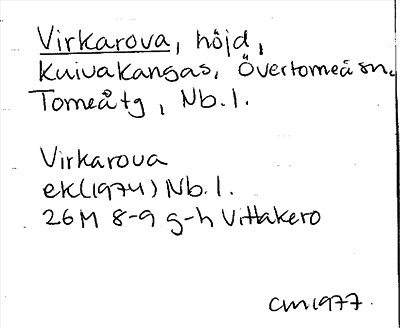 Virkarova, höjd,
Kuivakangas, Övertorneå sn.
Torneå tg, Nb.l.
Virkarova
ek(1974) Nb.l.
26M 8-9 g-h Vittakero
CM1977.